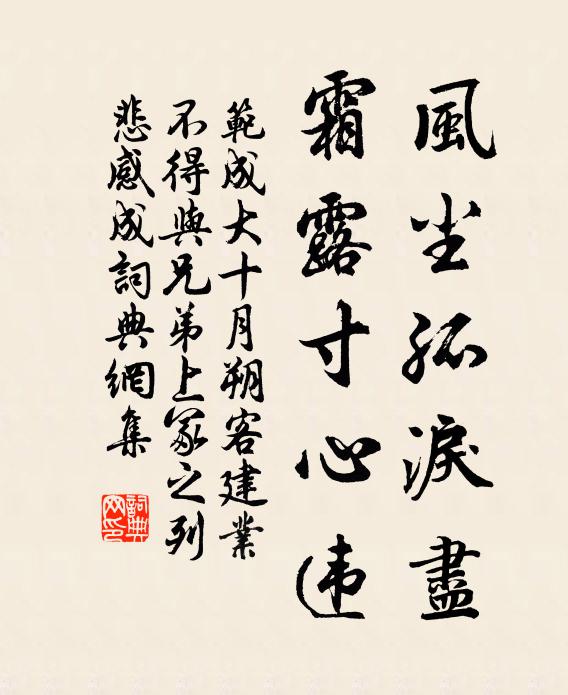 風尘孤淚盡
霜露寸心违
範成大十月朔客建業
不得與兄弟上冢之列
悲感成詞典網集
詞典
网印